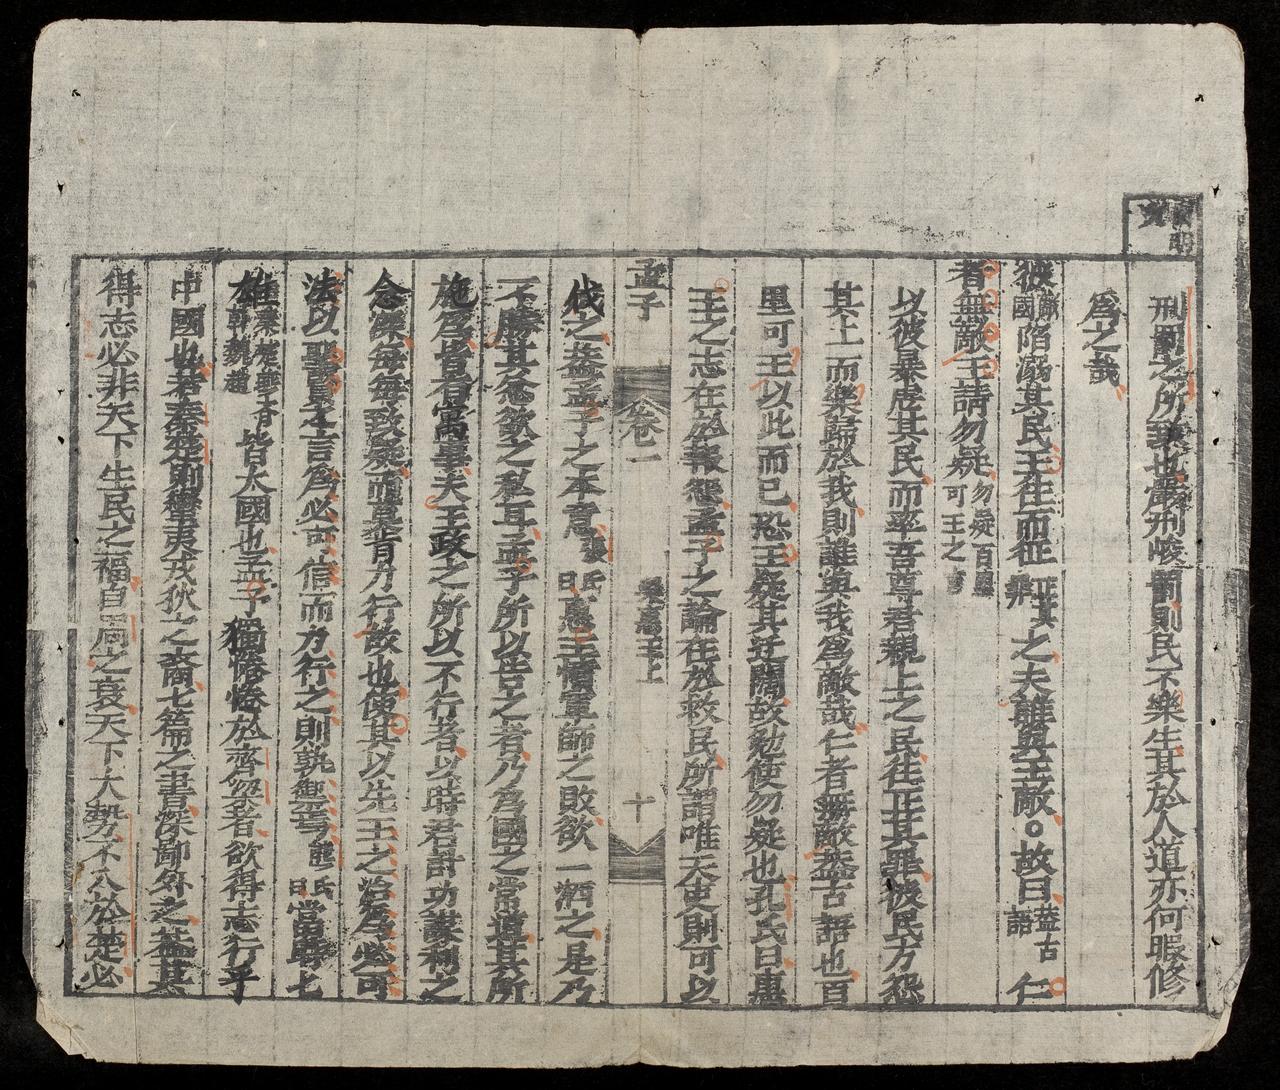 刑罰之所致也嚴刑峻罰則民不樂生其於人道亦何暇修
爲之哉
彼敵國陷溺其民王往而征正其罪之夫誰與王敵○故曰蓋古語仁
者無敵王請勿疑勿疑百里可王之言
以彼暴虐其民而率吾尊君親上之民往正其罪彼民方怨
其上而樂歸於我則誰與我爲敵哉仁者無敵蓋古語也百
里可王以此而已恐王疑其迂闊故勉使勿疑也孔氏曰惠
王之志在於報怨孟子之論在於救民所謂唯天吏則可以
孟子 卷一 梁惠王上 十
伐之蓋孟子之本意張氏曰惠王憤軍師之敗欲一洒之是乃
不勝其忿欲之私耳孟子所以告之者乃爲國之常道其所
施爲皆有當事夫王政之所以不行者以時君計功謀利之
念深每每致疑而莫肯力行故也使其以先王之治爲必可
法以聖賢之言爲必可信而力行之則孰禦焉熊氏曰當時七
雄秦楚燕齊韓魏趙皆大國也孟子獨惓惓於齊梁者欲得志行乎
中國也若秦楚則蠻夷戎狄之裔七篇之書深鄙外之蓋其
得志必非天下生民之福自周之衰天下大勢不入於楚必